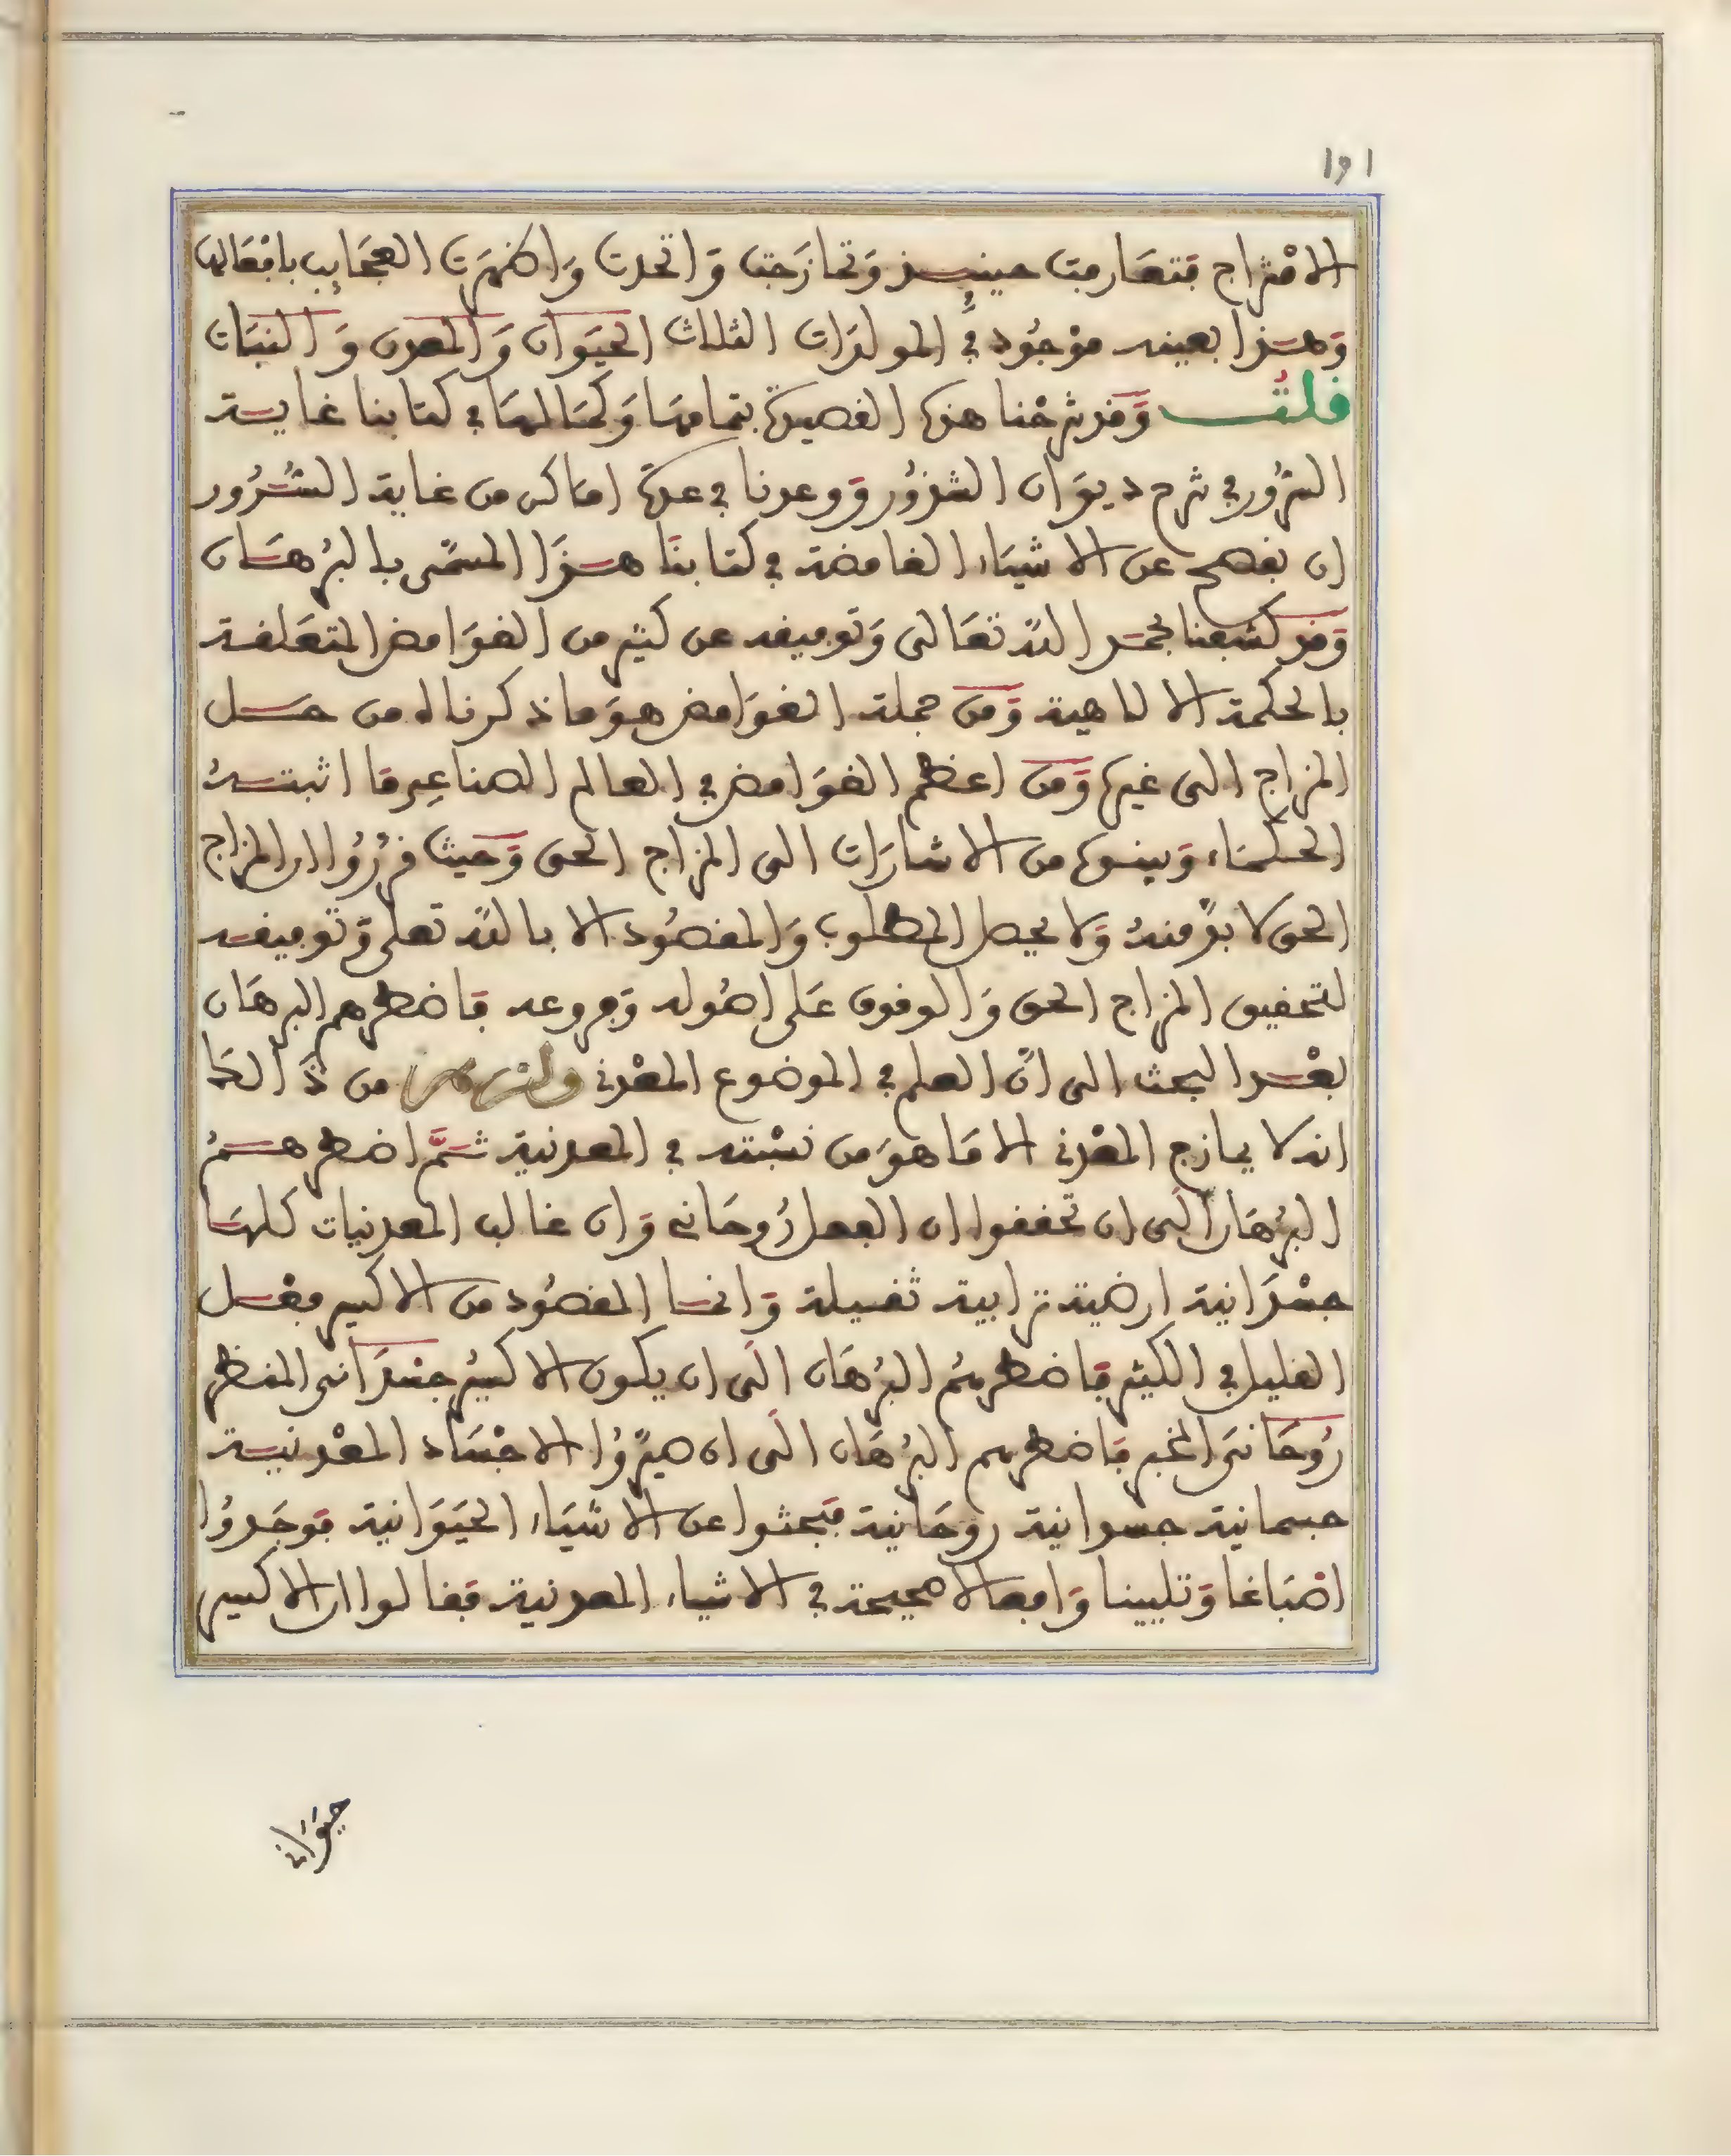 191
الامْتزاج فتعَارفت حينئذ وَتمازَجت وَاتحدت وَاظهرَت العجَايب بافعَالها
وَهذا بعينه موْجُود في المولدَات الثلاث الحيَوان وَالمعدن وَالنبَات
قلتُ وَقد شرحْنا هذه القصيدة بتمامهَا وَكمَالهَا في كتابنا غاية
السّرُور في شرح ديوَان الشذوُر وَوعدنا في عدة اماكن من غاية السُّرُور
ان نفصح عن الاشيَاء الغامضة في كتابنَا هذَا المسَمّى بالبرُهَان
وَقد كشفنا بحمد اللهّ تعَالى وَتوفيقه عن كثير من الغوَامض المتعَلقة
بالحكمة الالاهية وَمن جملة الغوَامض هوَ ما ذكرناه من حل
المزاج الى غيره وَمن اعظم الغوَامض في العالم الصناعِي مَا اثبتهُ
الحكمَاء وَبينوه من الاشارَات الى المزاج الحق وَحيث قرّرُوا ان المزاج
الحق لا بدّ منهُ وَلا يحصل المطلوب وَالمقصُود الا بالله تعلى وَتوفيقه
لتحقيق المزاج الحق وَالوقوف عَلى اصُوله وَفروعه فاضطرهم البرهَان
بعْد البحث الى انّ العلم في الموضوع المعْدني من ذَالكَ
انه لا يمازج المعْدني الا مَا هوَ من نسْبته في المعدنية ثمَّ اضطرهمُ
البرُهَان الَى ان تحققوا ان الفعل رُوحَاني وَان غالب المعدنيات كلهَا
جسْدَانية ارضية ترابية ثقيلة وَانما المقصُود من الاكسير فعْل
القليل في الكثير فَاضطرهمُ البرُهَان الَى ان يكون الاكسيُر جسْدَانى المنظر
رُوحَانىَ المخبر فَاضطرهم البرُهَان الَى ان صيرّوُا الاجْسَاد المعْدنية
جسمانية جسدانية روحَانية فبَحثوا عن الاشيَاء الحيَوَانية فوَجَدوُا
اصْبَاغا وَتليينا وَافعالا صحيحة في الاشياء المعدنية فقَالوا ان الاكسير
حيَوَاني